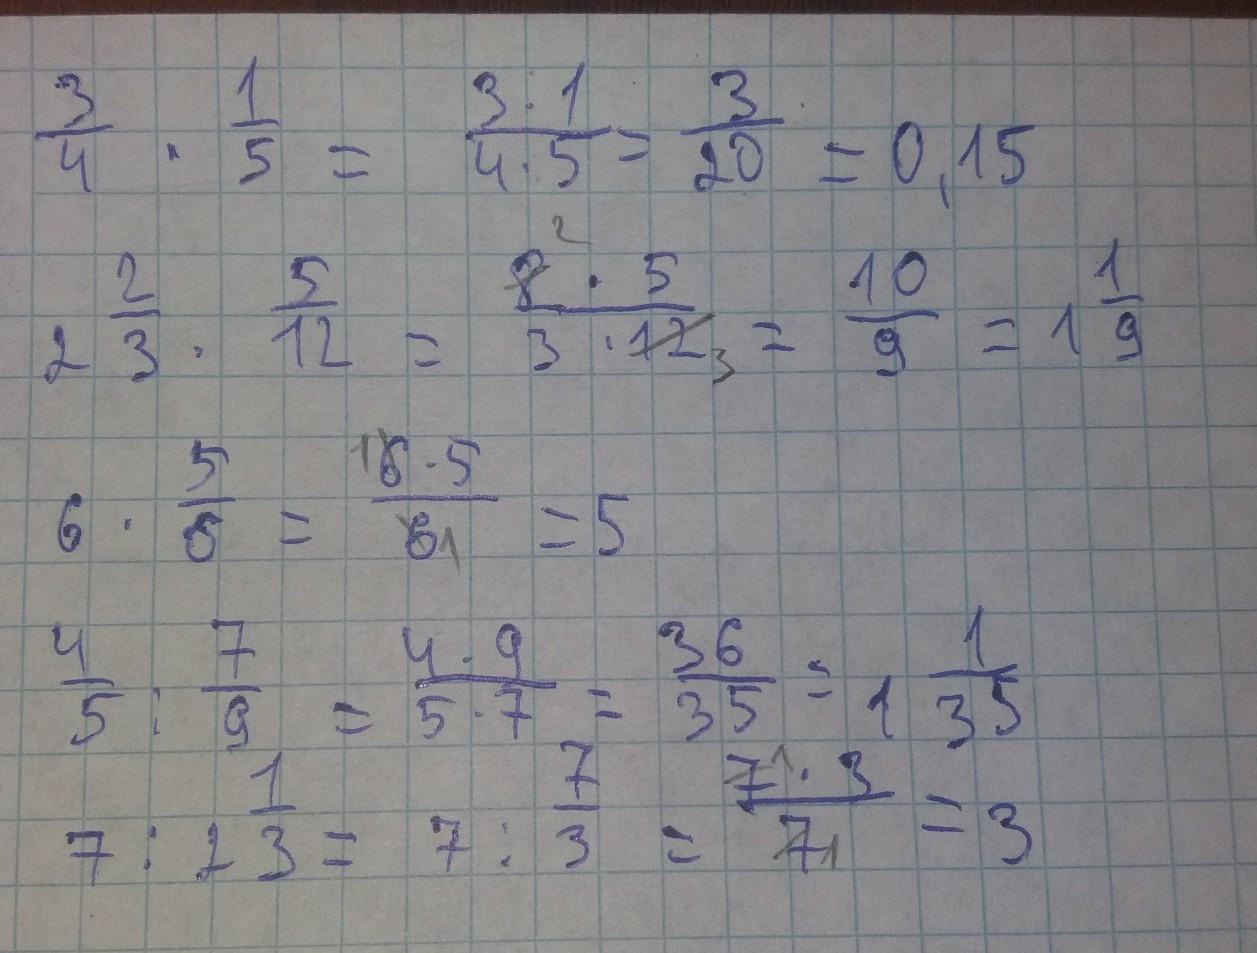 3/4 · 1/5 = 3·1/4·5 = 3/20 = 0,15
2 2/3 · 5/12 = 8 2 · 5/3 · 12 3 = 10/9 = 1 1/9
6 · 5/6 = 1 6·5/6 1 = 5
4/5 : 7/9 = 4·9/5·7 = 36/35 = 1 1/35
7 : 2 1/3 = 7 : 7/3 = 7 1 · 3/7 1 = 3